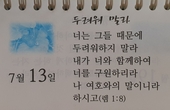 두려워 말라
너는 그들 때문에
두려워하지 말라
내가 너와 함께하여
너를 구원하리라
나 여호와의 말이니라
하시고(렘 1:8)
7월 13일